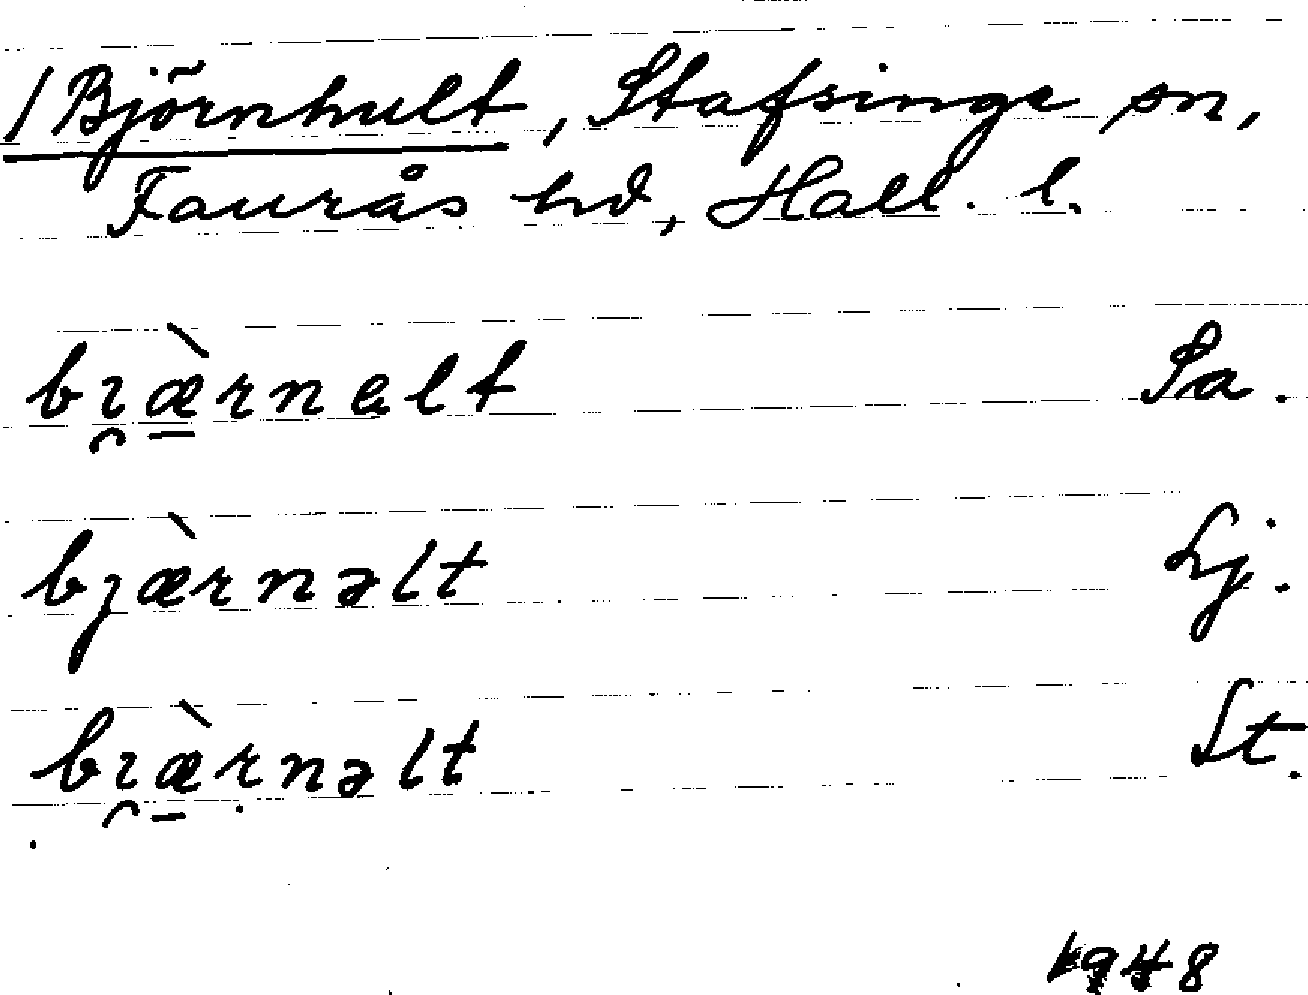 / Björnhult, Stafsinge sn,
Faurås hd, Hall. l.
bı̯æ̠̀rnelt Sa.
bjæ̀rnəlt Lj.
bı̯æ̠̀rnəlt St.
1948